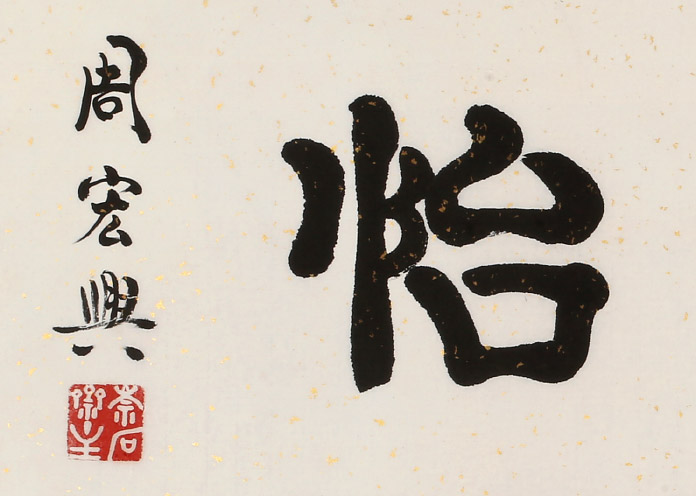 怡
周宏興